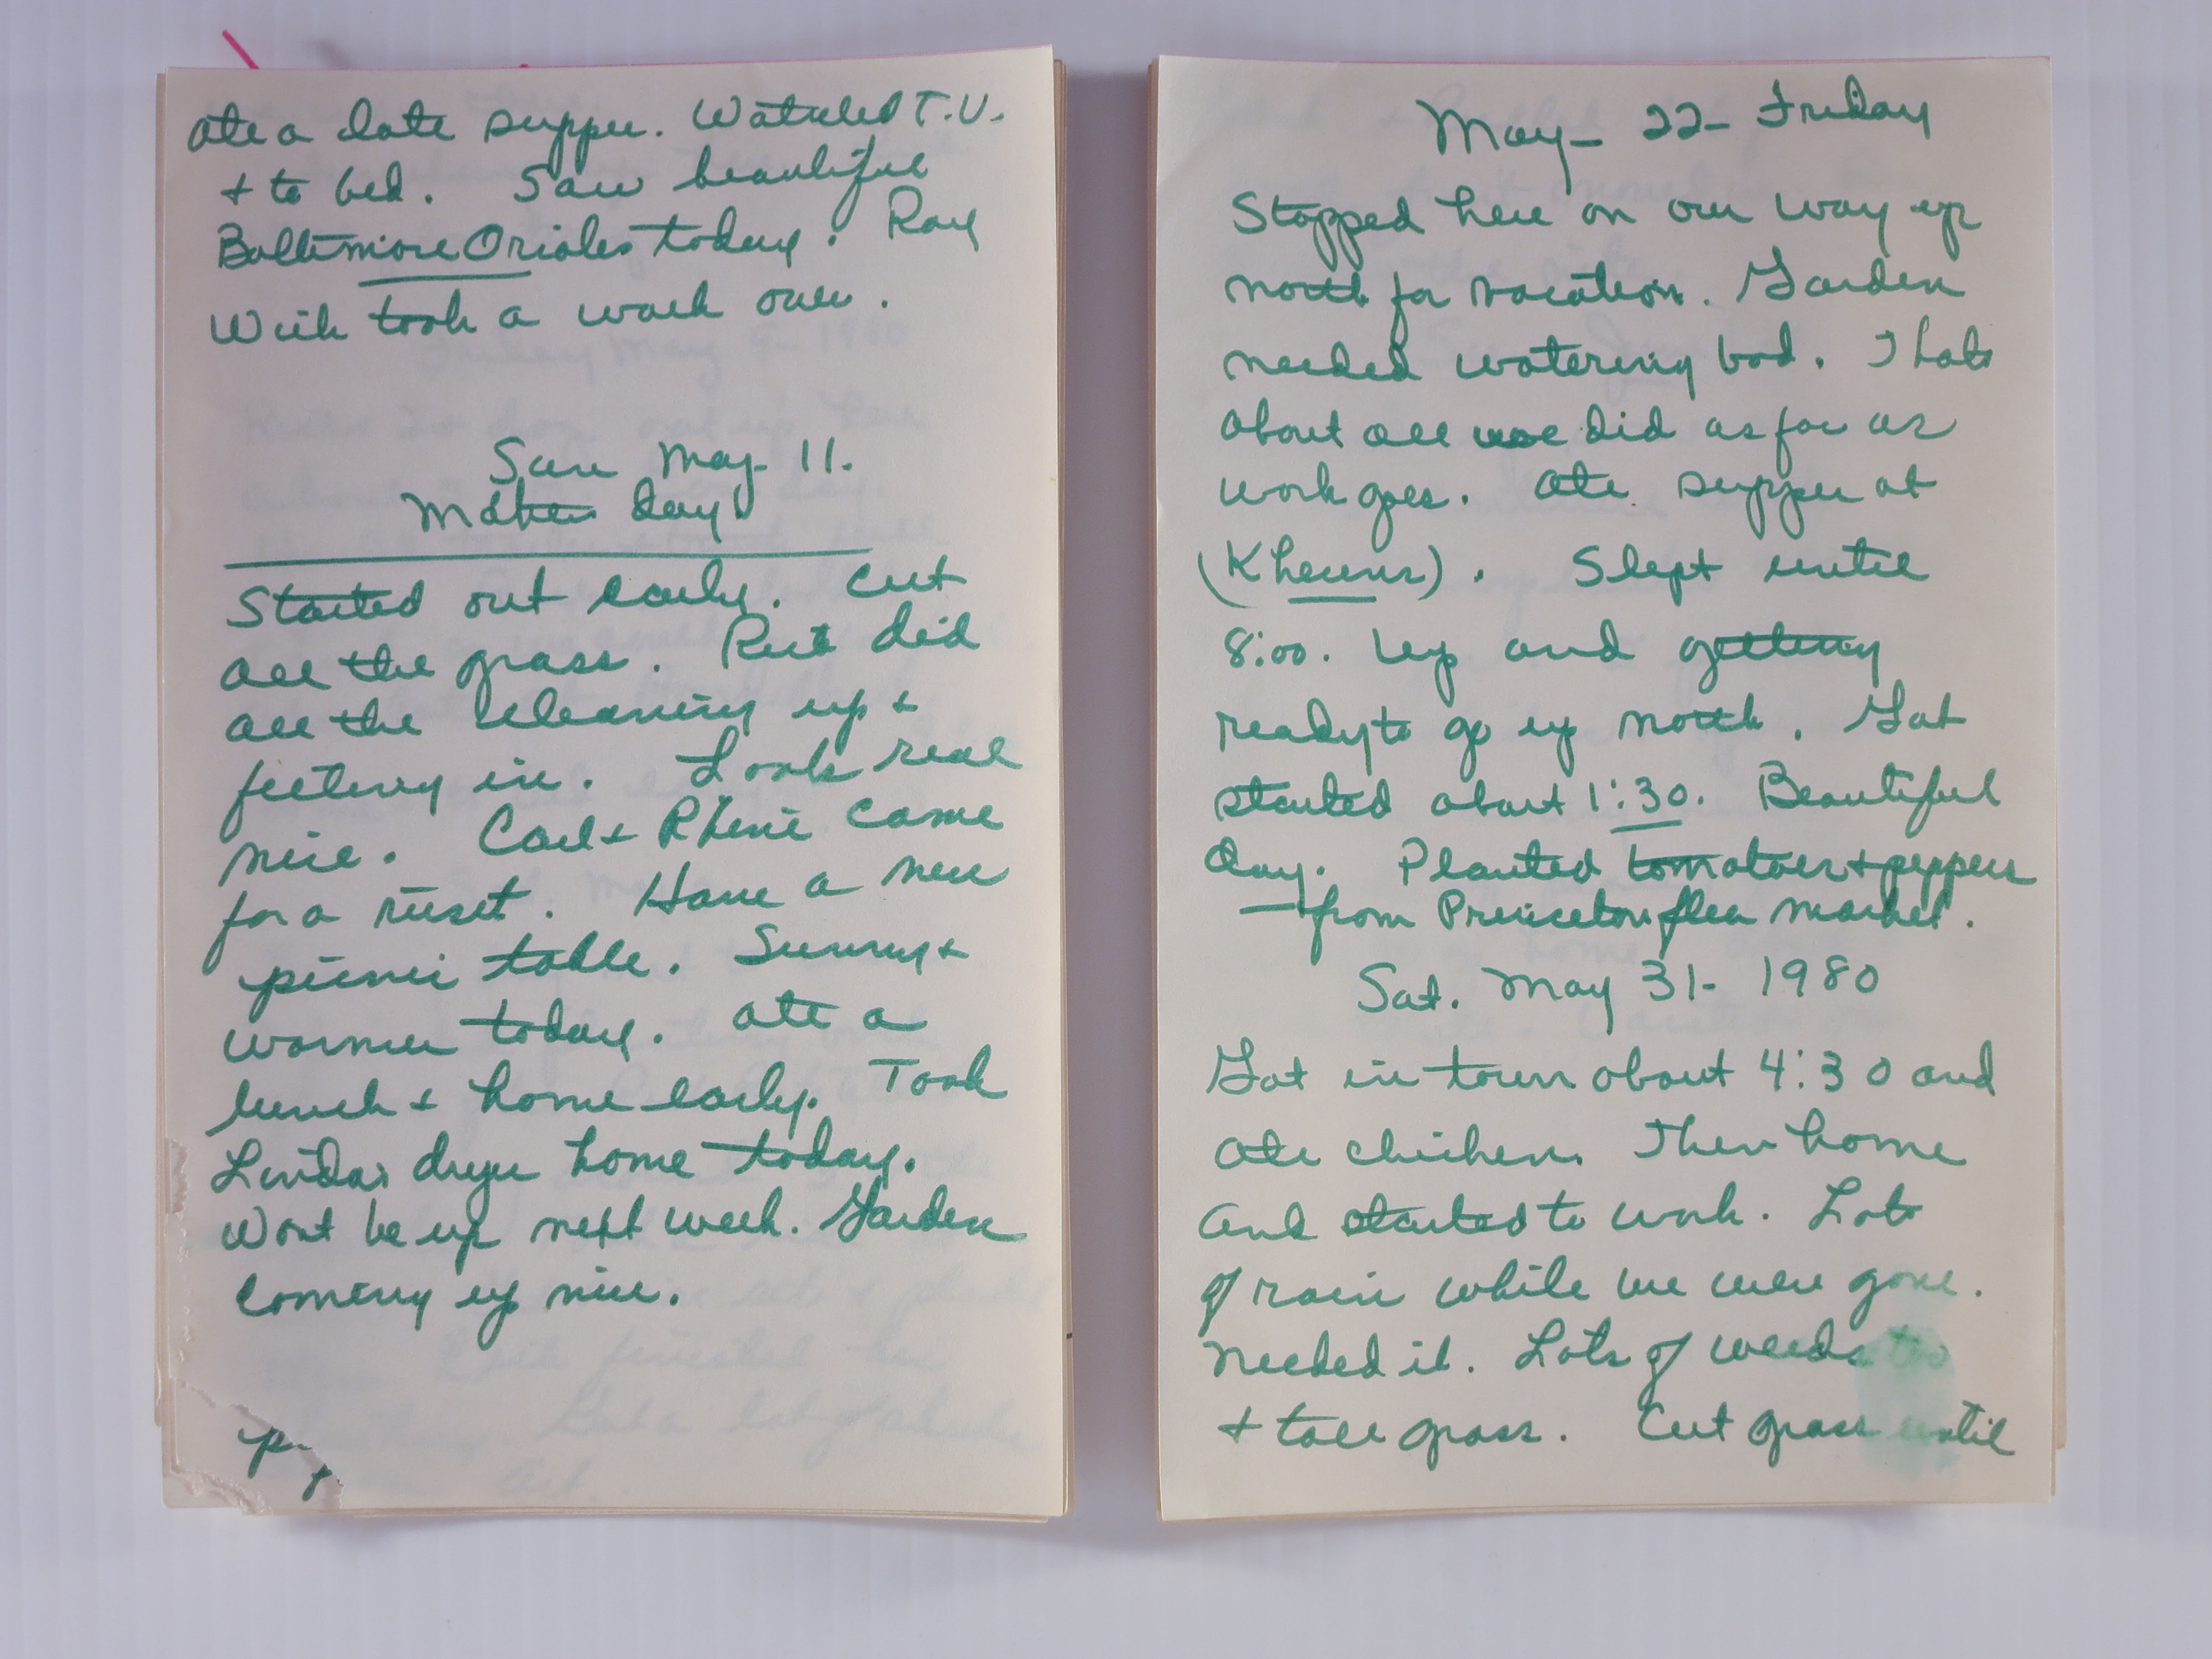 ate a late supper. Watched T.V.
+ to bed. Saw beautiful
Baltimore Orioles today. Ray
Wick took a walk over.
Sun May- 11.
Mothers day
Started out early. Cut
all the grass. Rut did
all the cleaning up +
feeling in. Looks real
nice. Carl + Rhene came
for a visit. Have a new
picnic table. Sunny +
warmer today. Ate a
lunch + home early. Took
Lindas dryer home today.
Wont be up next week. Garden
coming up nice.
May- 22- Friday
Stopped here on our way up
north for vacation. Garden
needed watering bad. Thats
about all we did as far as
work goes. Ate supper at
(Kheuns). Slept until
8:00. Up and getting
ready to go up north. Got
started about 1:30. Beautiful
day. Planted tomatoes + peppers
— from Princeton flea market.
Sat. May 31- 1980
Got in town about 4:30 and
ate chicken. Then home
and started to work. Lots
of rain while we were gone.
Needed it. Lots of weeds too
+ tall grass. Cut grass until